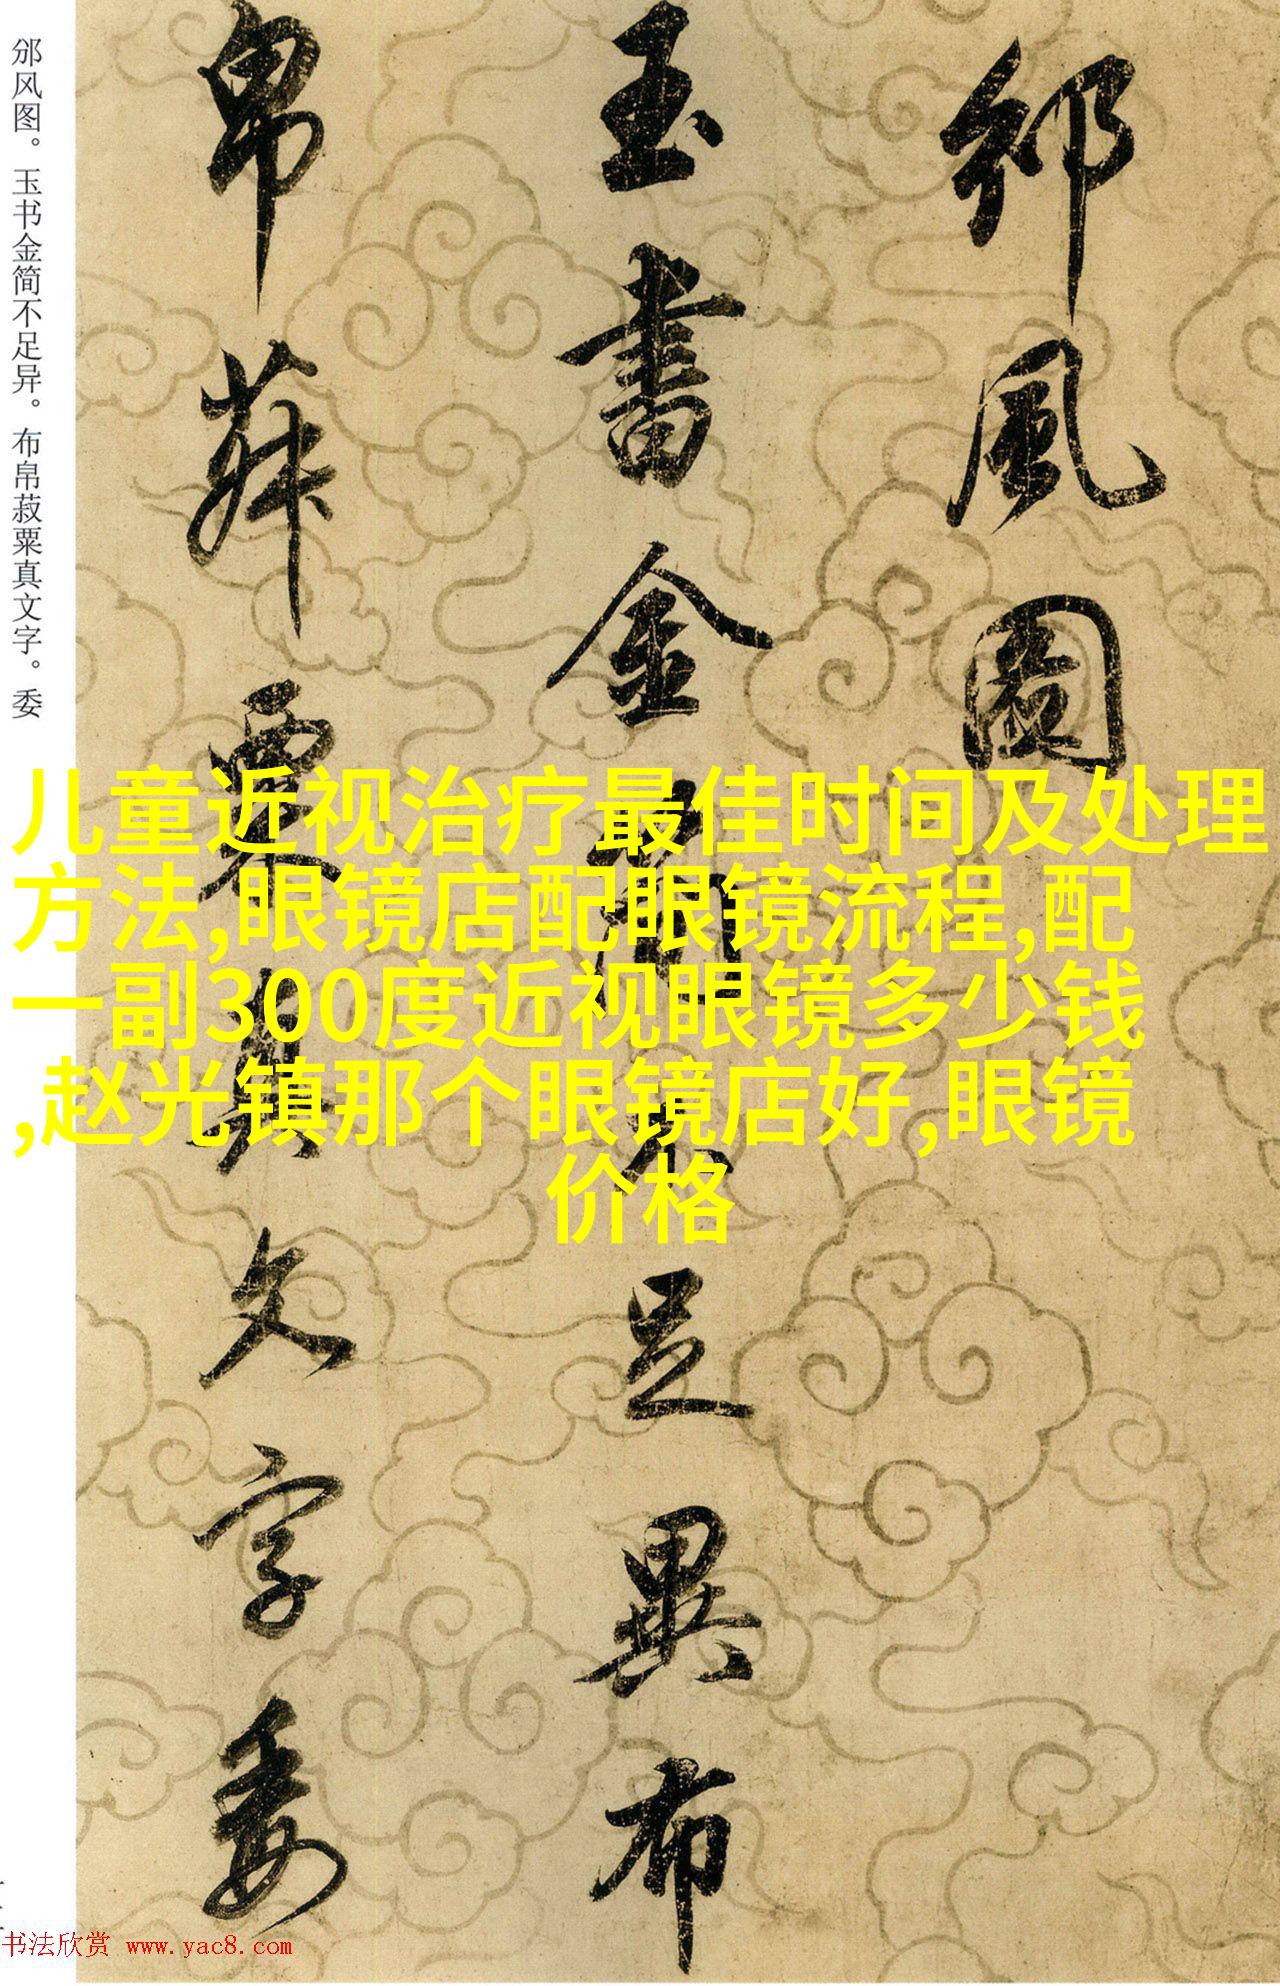 邠风图。玉书金简不足异。布帛菽粟真文字。委
邠風圖
玉書金簡不足異布
帛菽粟真文字委
儿童近视治疗最佳时间及处理
方法,眼镜店配眼镜流程,配
一副300度近视眼镜多少钱
,赵光镇那个眼镜店好,眼镜
价格
书法欣赏 www.yac8.com